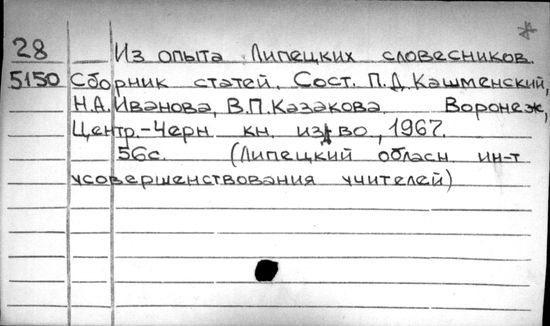 28 Из опыта Липецких словесников.
5150 Сборник статей. Сост. П.Д. Кашменский,
Н.А. Иванова, В.П. Казакова. Воронеж,
Центр.-Черн. кн. изд-во, 1967.
56с. (Липецкий обласн. ин-т
усовершенствования учителей)